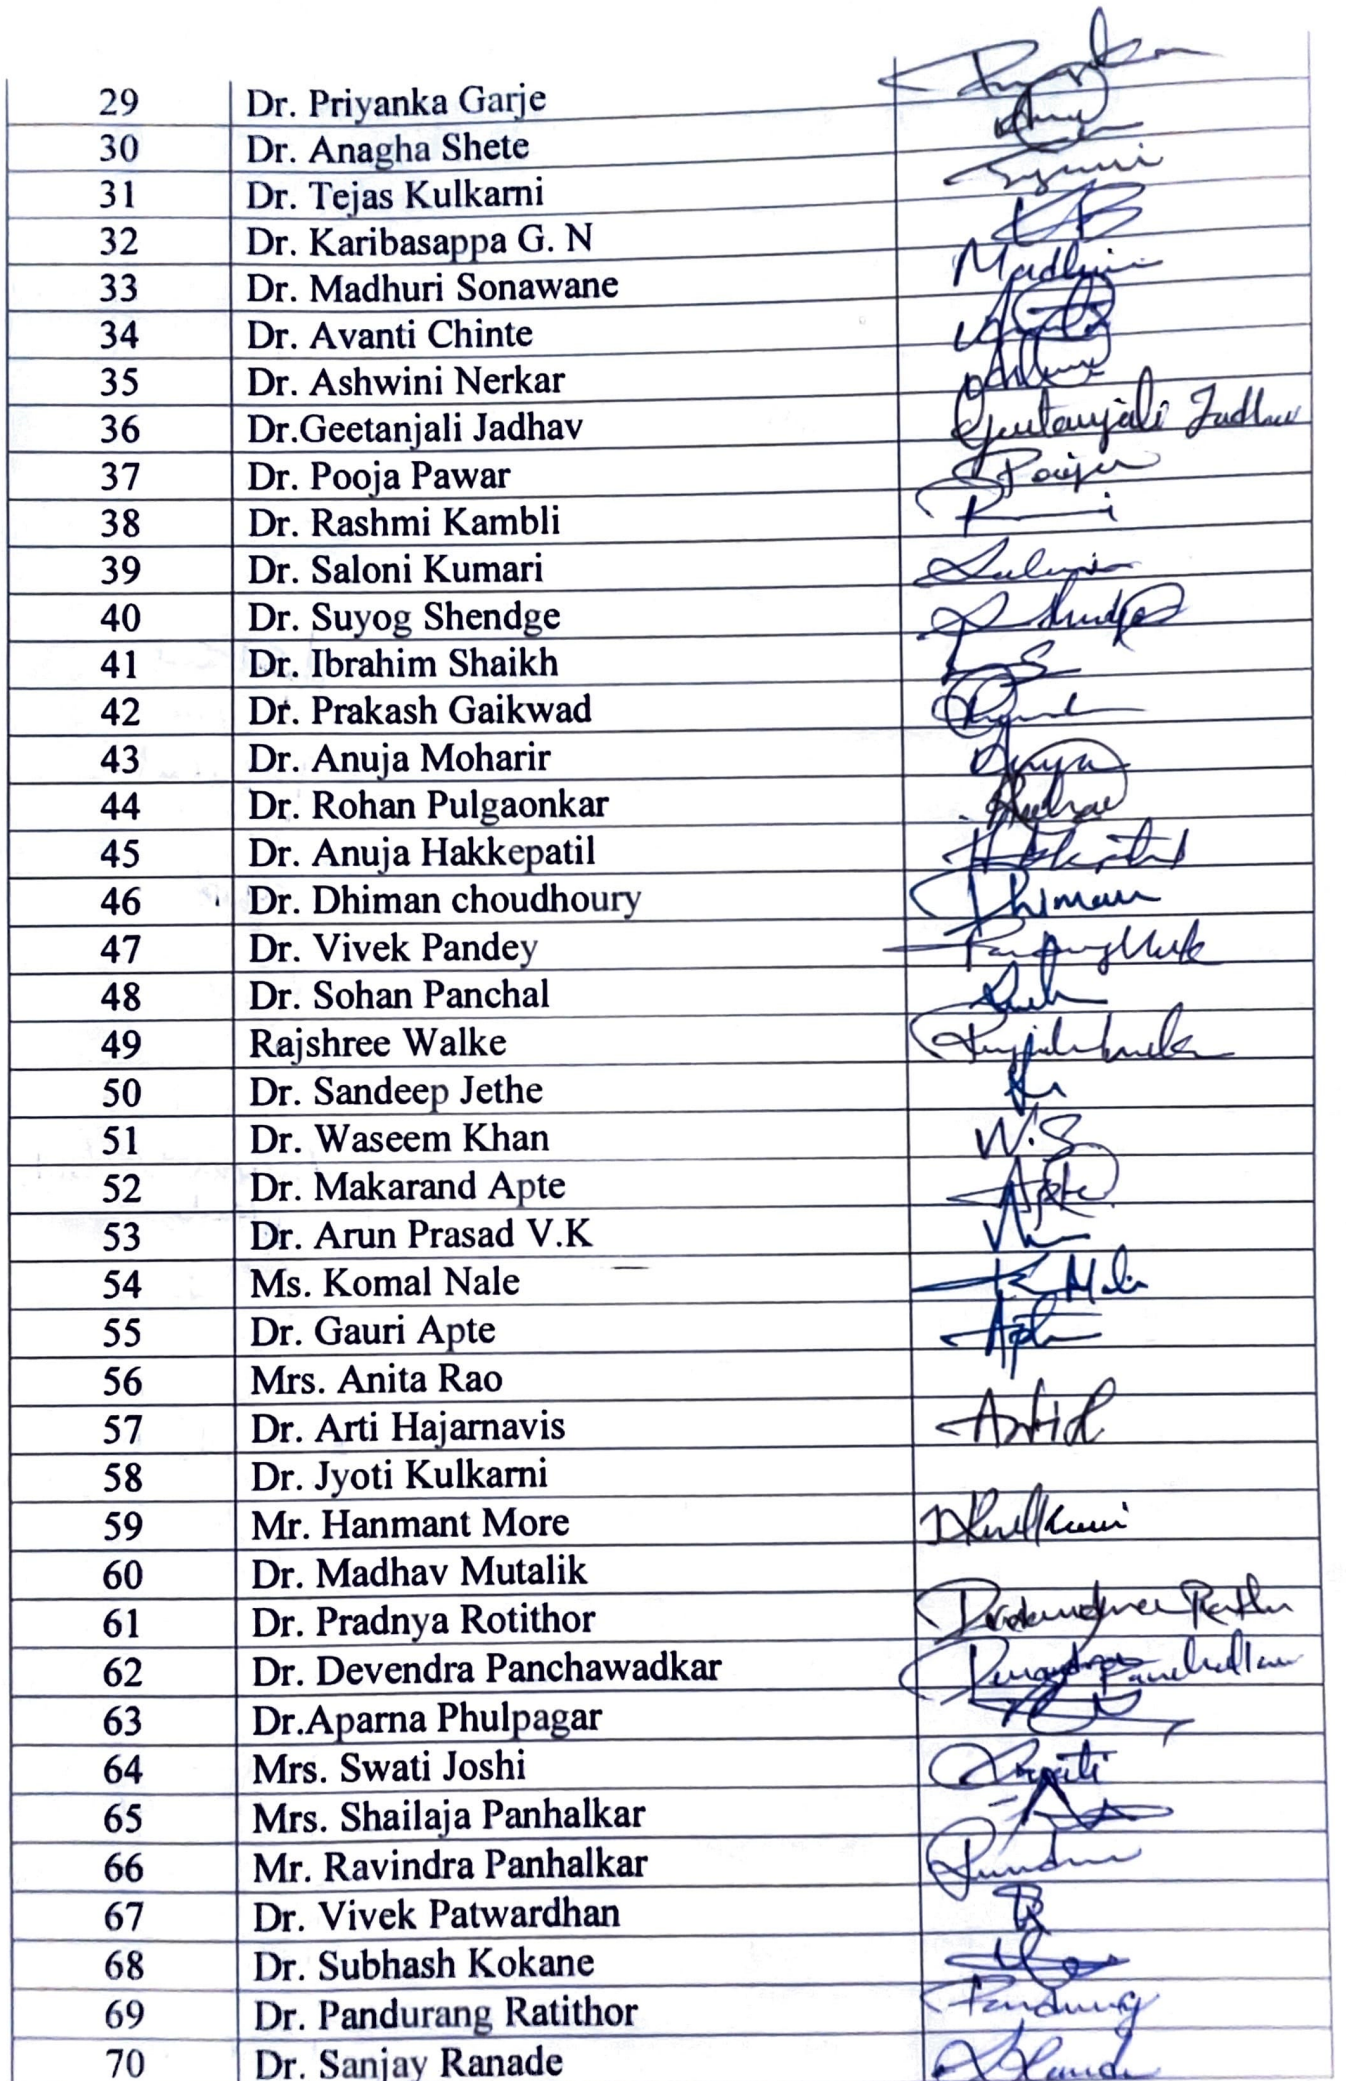 29 Dr. Priyanka Garje
30 Dr. Anagha Shete
31 Dr. Tejas Kulkarni
32 Dr. Karibasappa G. N
33 Dr. Madhuri Sonawane Madhuri
34 Dr. Avanti Chinte
35 Dr. Ashwini Nerkar
36 Dr.Geetanjali Jadhav Geetanjali Jadhav
37 Dr. Pooja Pawar Pooja
38 Dr. Rashmi Kambli
39 Dr. Saloni Kumari
40 Dr. Suyog Shendge
41 Dr. Ibrahim Shaikh
42 Dr. Prakash Gaikwad
43 Dr. Anuja Moharir
44 Dr. Rohan Pulgaonkar
45 Dr. Anuja Hakkepatil
46 Dr. Dhiman choudhoury Dhiman
47 Dr. Vivek Pandey
48 Dr. Sohan Panchal
49 Rajshree Walke
50 Dr. Sandeep Jethe
51 Dr. Waseem Khan W.S
52 Dr. Makarand Apte Apte
53 Dr. Arun Prasad V.K
54 Ms. Komal Nale
55 Dr. Gauri Apte
56 Mrs. Anita Rao
57 Dr. Arti Hajarnavis
58 Dr. Jyoti Kulkarni
59 Mr. Hanmant More
60 Dr. Madhav Mutalik
61 Dr. Pradnya Rotithor
62 Dr. Devendra Panchawadkar
63 Dr.Aparna Phulpagar
64 Mrs. Swati Joshi Swati
65 Mrs. Shailaja Panhalkar
66 Mr. Ravindra Panhalkar
67 Dr. Vivek Patwardhan
68 Dr. Subhash Kokane
69 Dr. Pandurang Ratithor Pandurang
70 Dr. Sanjay Ranade